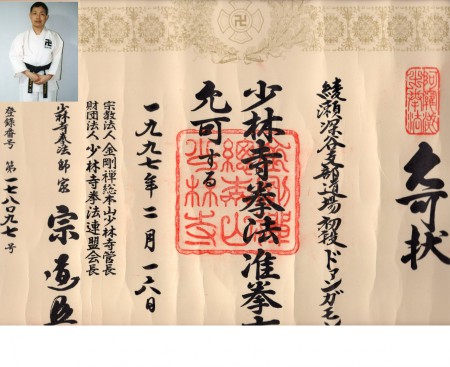 允可状
綾瀬深谷支部道場初段ドァンガモン
少林寺拳法准拳士
允可する
一九九七年二月一六日
宗教法人金剛禅総本山少林寺管長
財団法人少林寺拳法連盟会長
少林寺拳法師家 宗道臣
登録番号 第一七八〇九七号
金剛禅総本山少林寺